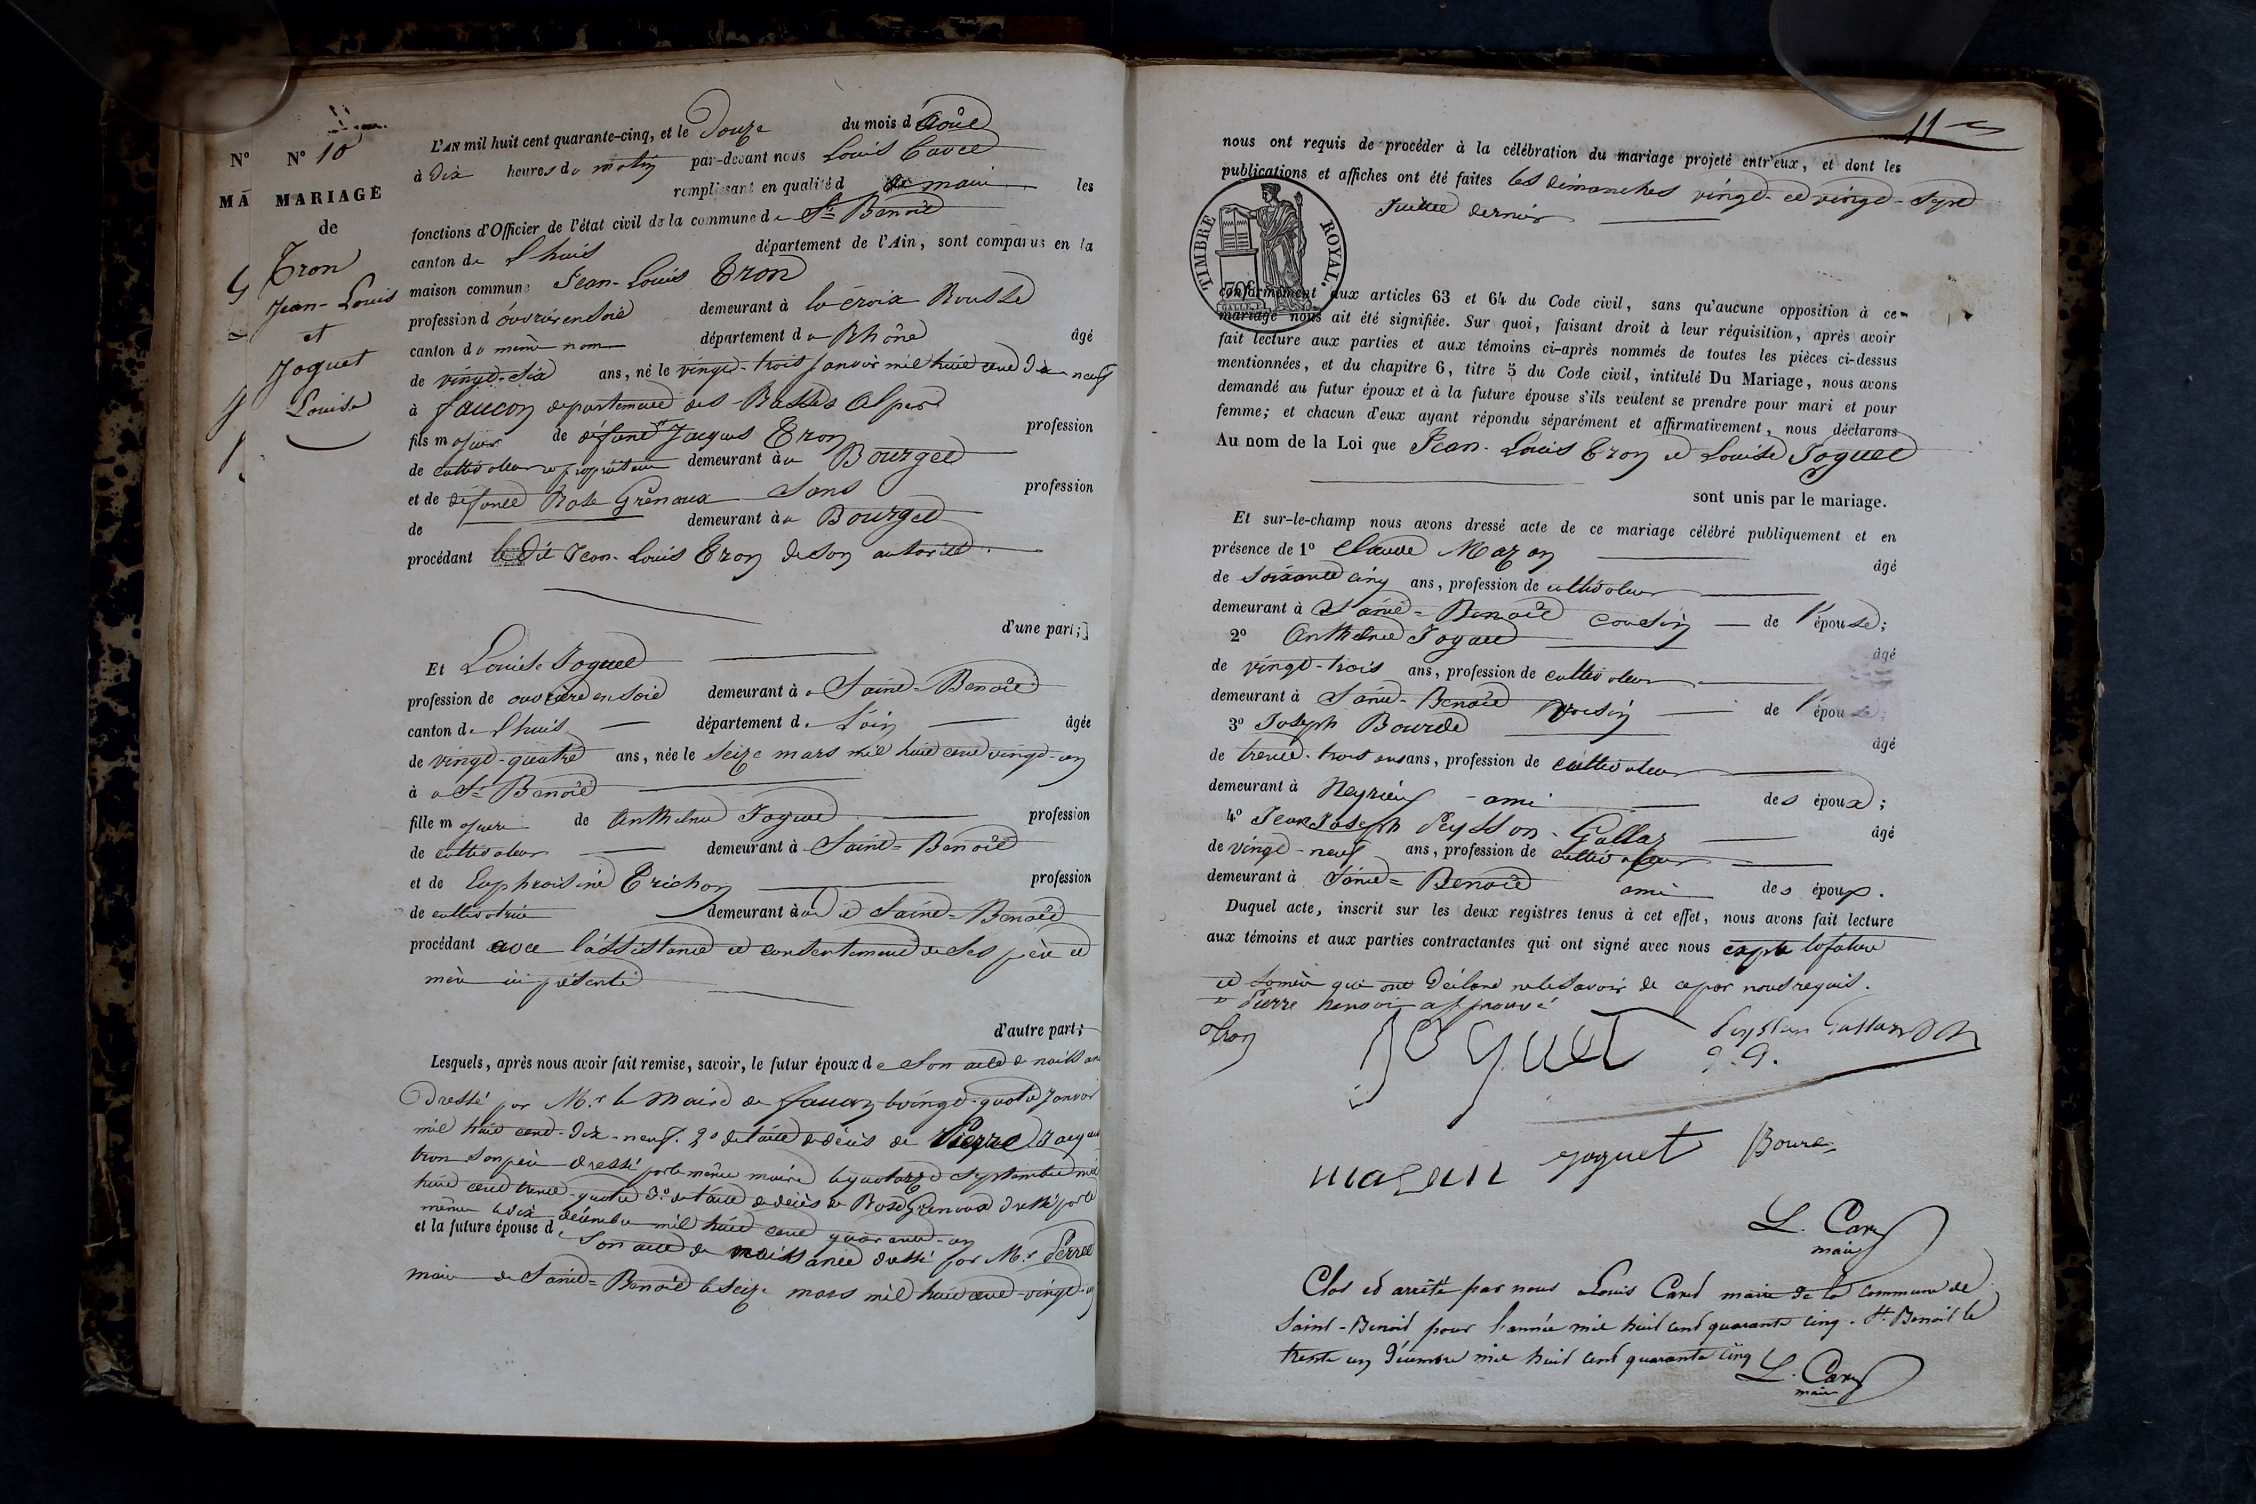 N° 10
MARIAGE
de
Tron
Jean-Louis
et
Joguet
Louise
N°
MA
L'AN mil huit cent quarante-cinq, et le Douze du mois d'Août
à dix heures du matin par-devant nous Louis Cavet
remplissant en qualité d de maire les
fonctions d'Officier de l'état civil de la commune de St Benoit
canton de Lhuis département de l'Ain, sont comparus en la
maison commune Jean-Louis Tron
profession d'ouvrier en soie demeurant à la croix Rousse
canton du même nom département du Rhône âgé
de vingt-six ans, né le vingt-trois janvier mil huit cent dix neuf
à faucon département des Basses Alpes
fils majeur de défunt Jacques Tron profession
de cultivateur propriétaire demeurant à Bourget
et de défunte Rose Grenoux Sans profession
de demeurant à Bourget
procédant le dit Jean-Louis Tron de son autorité
d'une part;
Et Louise Joguet
profession de ouvrière en soie demeurant à Saint-Benoit
canton de Lhuis département de l'ain âgée
de vingt-quatre ans, née le seize mars mil huit cent vingt-un
à St Benoit
fille majeure de Anthelme Joguet profession
de cultivateur demeurant à Saint-Benoit
et de Euphroisine Trichon profession
de cultivatrice demeurant à Saint-Benoit
procédant avec l'assistance et consentement de ses père et
mère ici présents
d'autre part;
Lesquels, après nous avoir fait remise, savoir, le futur époux de Son acte de naissance
Dressé par Mr le Maire de faucon le vingt-quatre Janvier
mil huit cent-dix-neuf. 2° de l'acte de décès de Pierre Jacques
tron son père dressé par le même maire le quatorze septembre mil
huit cent trente-quatre 3° de l'acte de décès de Rose Grenoux dressé par le
même le dix décembre mil huit cent quarante-un
et la future épouse de Son acte de naissance dressé par Mr Perret
maire de Saint-Benoit le seize mars mil huit cent vingt-un
11
nous ont requis de procéder à la célébration du mariage projeté entr'eux, et dont les
publications et affiches ont été faites les dimanches vingt-et vingt-sept
Juillet dernier
TIMBRE ROYAL.
conformément aux articles 63 et 64 du Code civil, sans qu'aucune opposition à ce
mariage nous ait été signifiée. Sur quoi, faisant droit à leur réquisition, après avoir
fait lecture aux parties et aux témoins ci-après nommés de toutes les pièces ci-dessus
mentionnées, et du chapitre 6, titre 5 du Code civil, intitulé Du Mariage, nous avons
demandé au futur époux et à la future épouse s'ils veulent se prendre pour mari et pour
femme; et chacun d'eux ayant répondu séparément et affirmativement, nous déclarons
Au nom de la Loi que Jean-Louis Tron et Louise Joguet
sont unis par le mariage.
Et sur-le-champ nous avons dressé acte de ce mariage célébré publiquement et en
présence de 1° Claude Mazon âgé
de soixante cinq ans, profession de cultivateur
demeurant à Saint-Benoit cousin de l'épouse;
2° Anthelme Joguet âgé
de vingt-trois ans, profession de cultivateur
demeurant à Saint-Benoit voisin de l'épouse;
3° Joseph Bourde âgé
de trente-trois ans ans, profession de cultivateur
demeurant à Neyrieu ami des époux;
4° Jean Joseph Peysson-Gallaz âgé
de vingt-neuf ans, profession de cultivateur
demeurant à Saint-Benoit ami des époux.
Duquel acte, inscrit sur les deux registres tenus à cet effet, nous avons fait lecture
aux témoins et aux parties contractantes qui ont signé avec nous excepté la future
et sa mère qui ont déclaré ne le savoir de ce par nous requis.
Pierre renvoi approuvé
Tron JOGUET
mazon Joguet Bourde
L. Cavet
maire
Clos et arrêté par nous Louis Cavet maire de la commune de
Saint-Benoit pour l'année mil huit cent quarante cinq. St Benoit le
trente un décembre mil huit cent quarante cinq
L. Cavet
maire